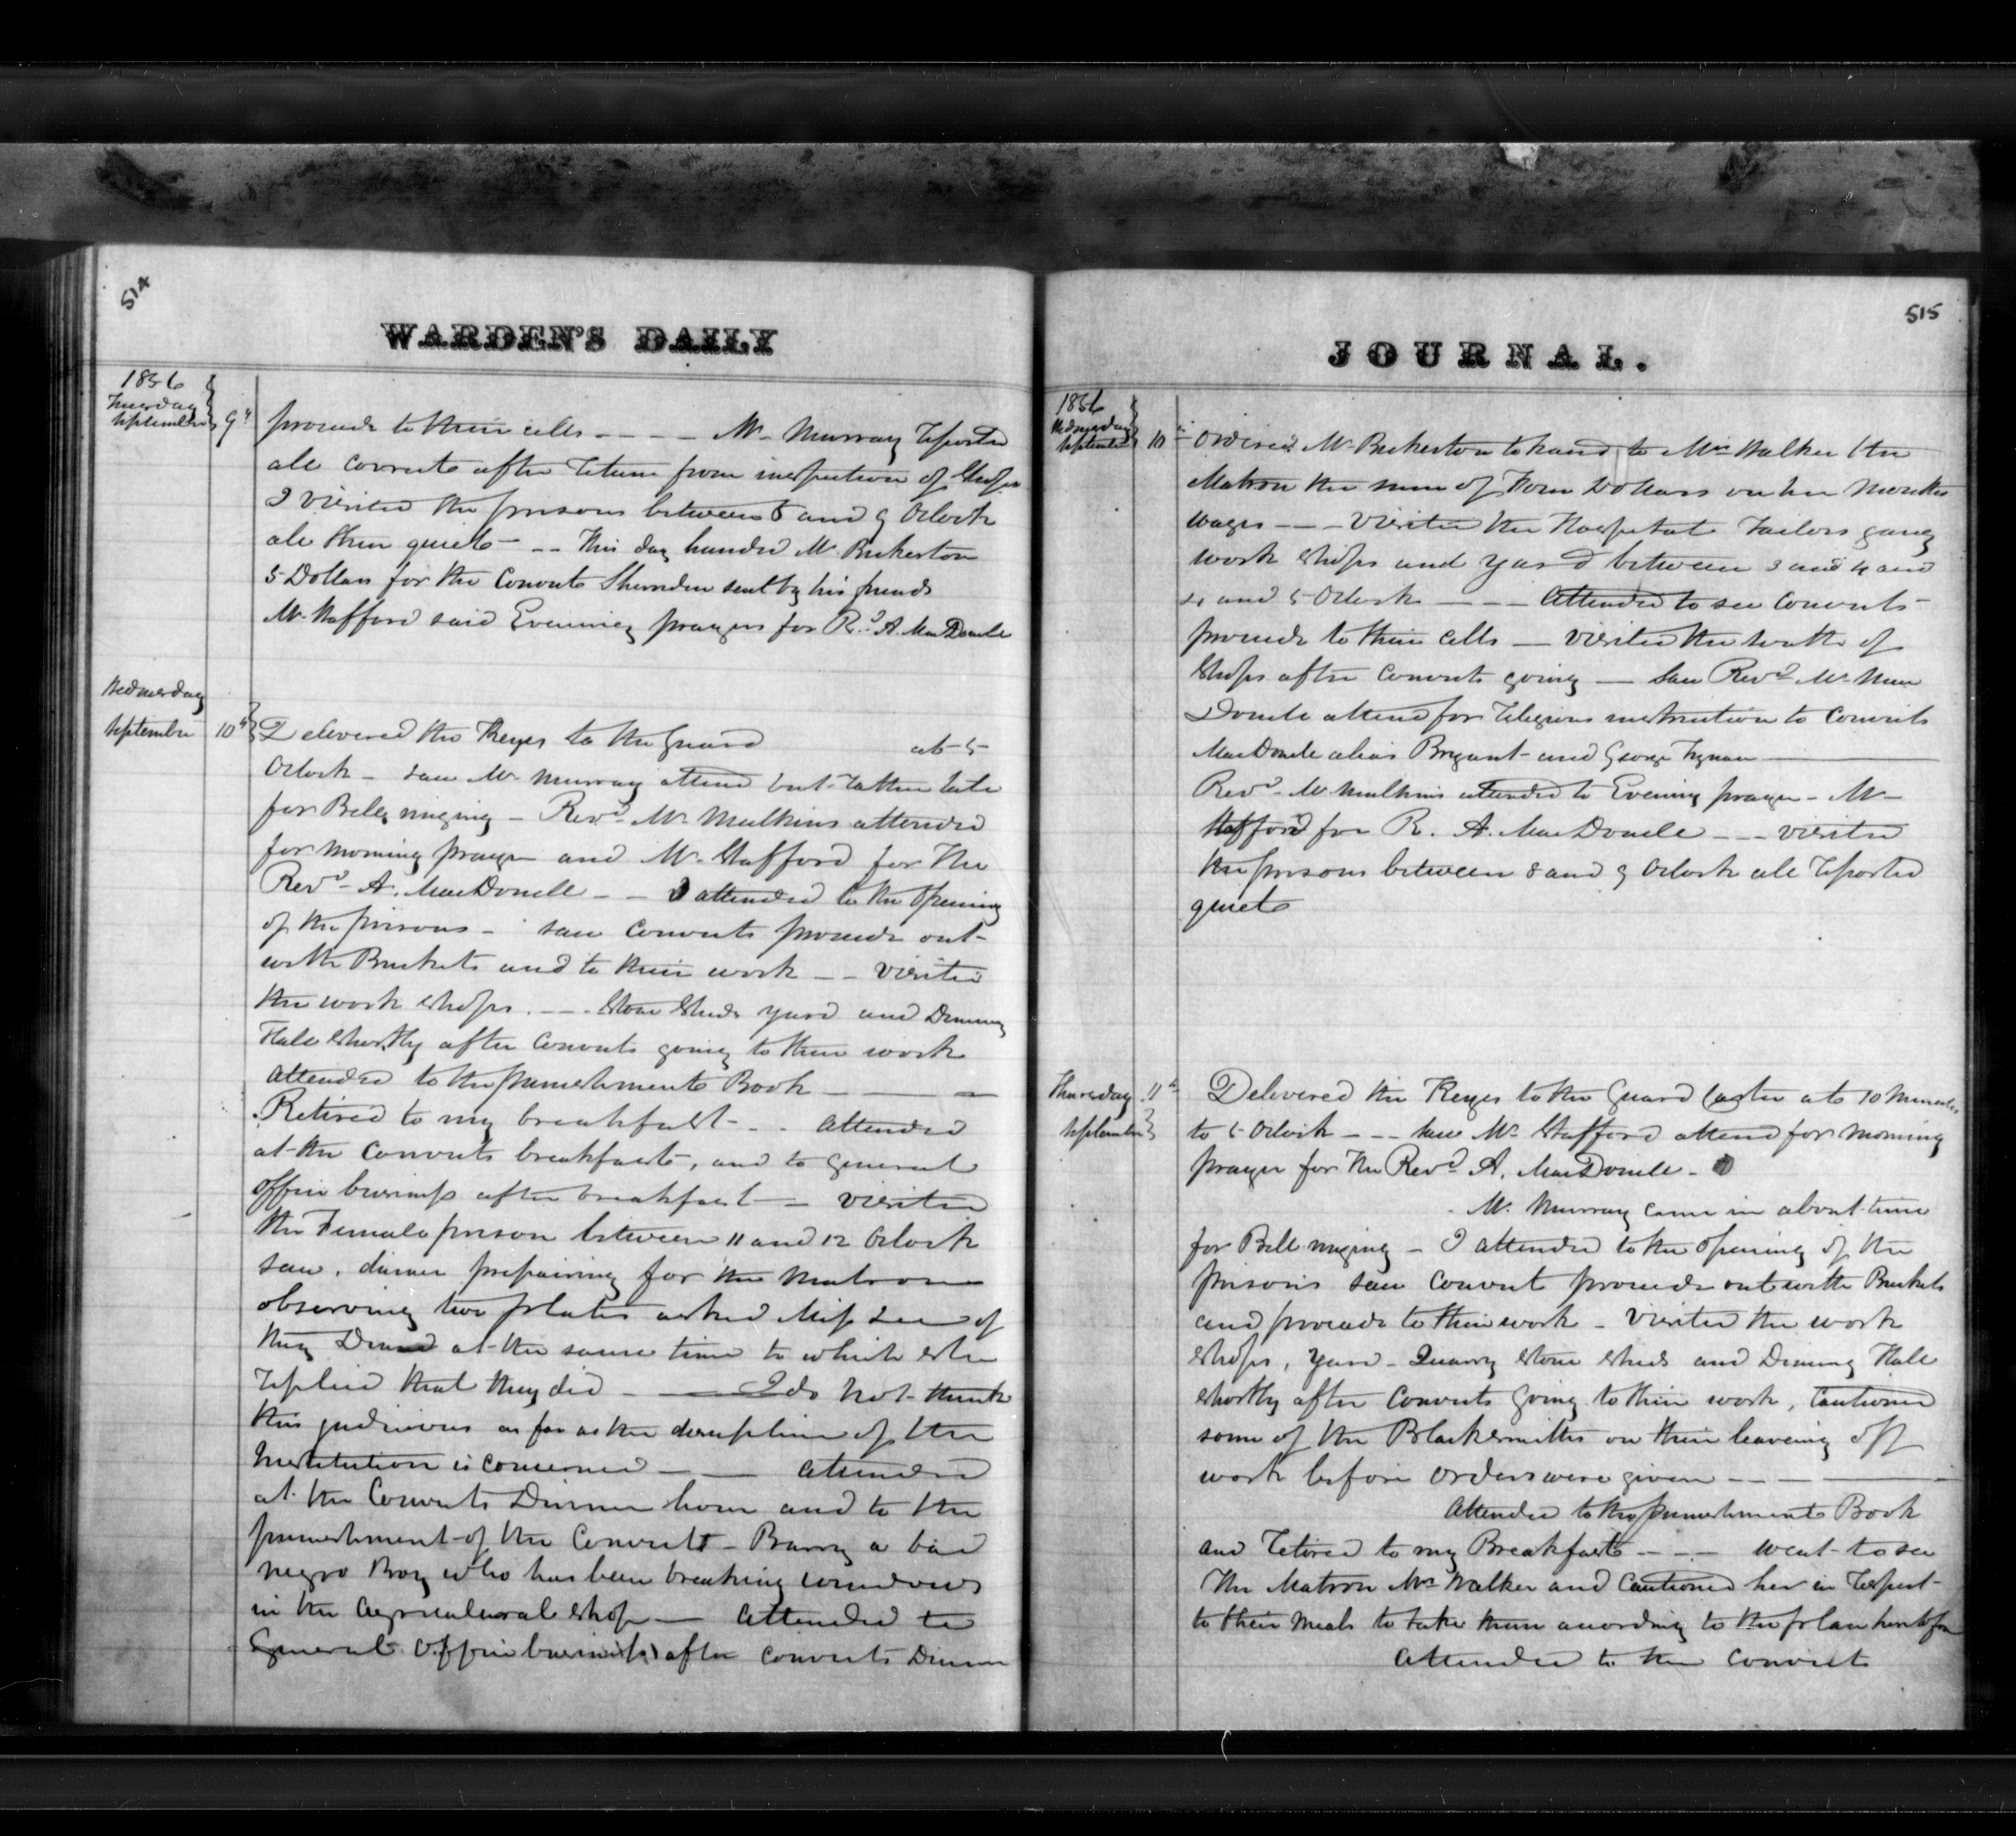 514
WARDEN'S DAILY
1856
Tuesday
September 9th
proceed to their cells - - - - Mr Murray reported
all correct after return from inspection of Shops
I visited the prisons between 8 and 9 Oclock
all then quiet - - - This day handed Mr Bickerton
5 Dollars for the Convict sent by his friends
Mr Stafford said Evening prayers for Rd A. MacDonell
Wednesday
September 10th
Delivered the Keyes to the Guard at 5
Oclock - saw Mr Murray attend but rather late
for Bell ringing - Revd Mr Mulkins attended
for morning prayer and Mr Stafford for the
Revd A. MacDonell - - I attended to the opening
of the prisons - saw Convicts proceed out
with Buckets and to their work - - visited
the work shops - - - Stone Sheds yard and Dining
Hall shortly after Convicts going to their work
attended to the punishment Book - - -
Retired to my breakfast - - attended
at the Convicts breakfast, and to general
office business after breakfast - visited
the Female prison between 11 and 12 Oclock
saw dinner prepairing for the Matron
observing two plates asked Miss Lee if
they Dined at the same time to which she
replied that they did - - I do not think
this judicious as far as the discipline of the
Institution is concerned - - attended
at the Convicts Dinner hour and to the
punishment of the Convict - Barry a bad
negro Boy who has been breaking windows
in the agricultural shop - Attended to
General Office business after Convicts Dinner
515
JOURNAL.
1856
Wednesday
September 10th
ordered Mr Bickerton to hand to Mrs Walker the
Matron the sum of Four Dollars on her months
wages - - - visited the Hospital Tailors gang
work shops and yard between 3 and 4 and
4 and 5 Oclock - - - Attended to see Convicts
proceed to their cells - visited the walk of
Shops after Convicts going - saw Revd Mr Mac
Donell attend for religious instruction to Convicts
MacDonell alias Bryant and George
Revd Mr Mulkins attended to Evening prayer - Mr
Stafford for R. A. MacDonell - - - visited
the prisons between 8 and 9 Oclock all reported
quiet
Thursday 11th
September
Delivered the Keyes to the Guard at 10 Minutes
to 5 Oclock - - - saw Mr Stafford attend for morning
prayer for the Revd A. MacDonell -
- Mr Murray came in about time
for Bell ringing - I attended to the opening of the
prisons saw Convict proceed out with Buckets
and proceed to their work - Visited the work
shops, yard - Quarry stone sheds and Dining Hall
shortly after Convicts going to their work, Cautioned
some of the Blacksmiths on their leaveing off
work before orders were given - - -
Attended to the punishment Book
and retired to my Breakfast - - - went to see
the Matron Mrs Walker and Cautioned her in respect
to their meals to take them according to the plan
Attended to the Convicts